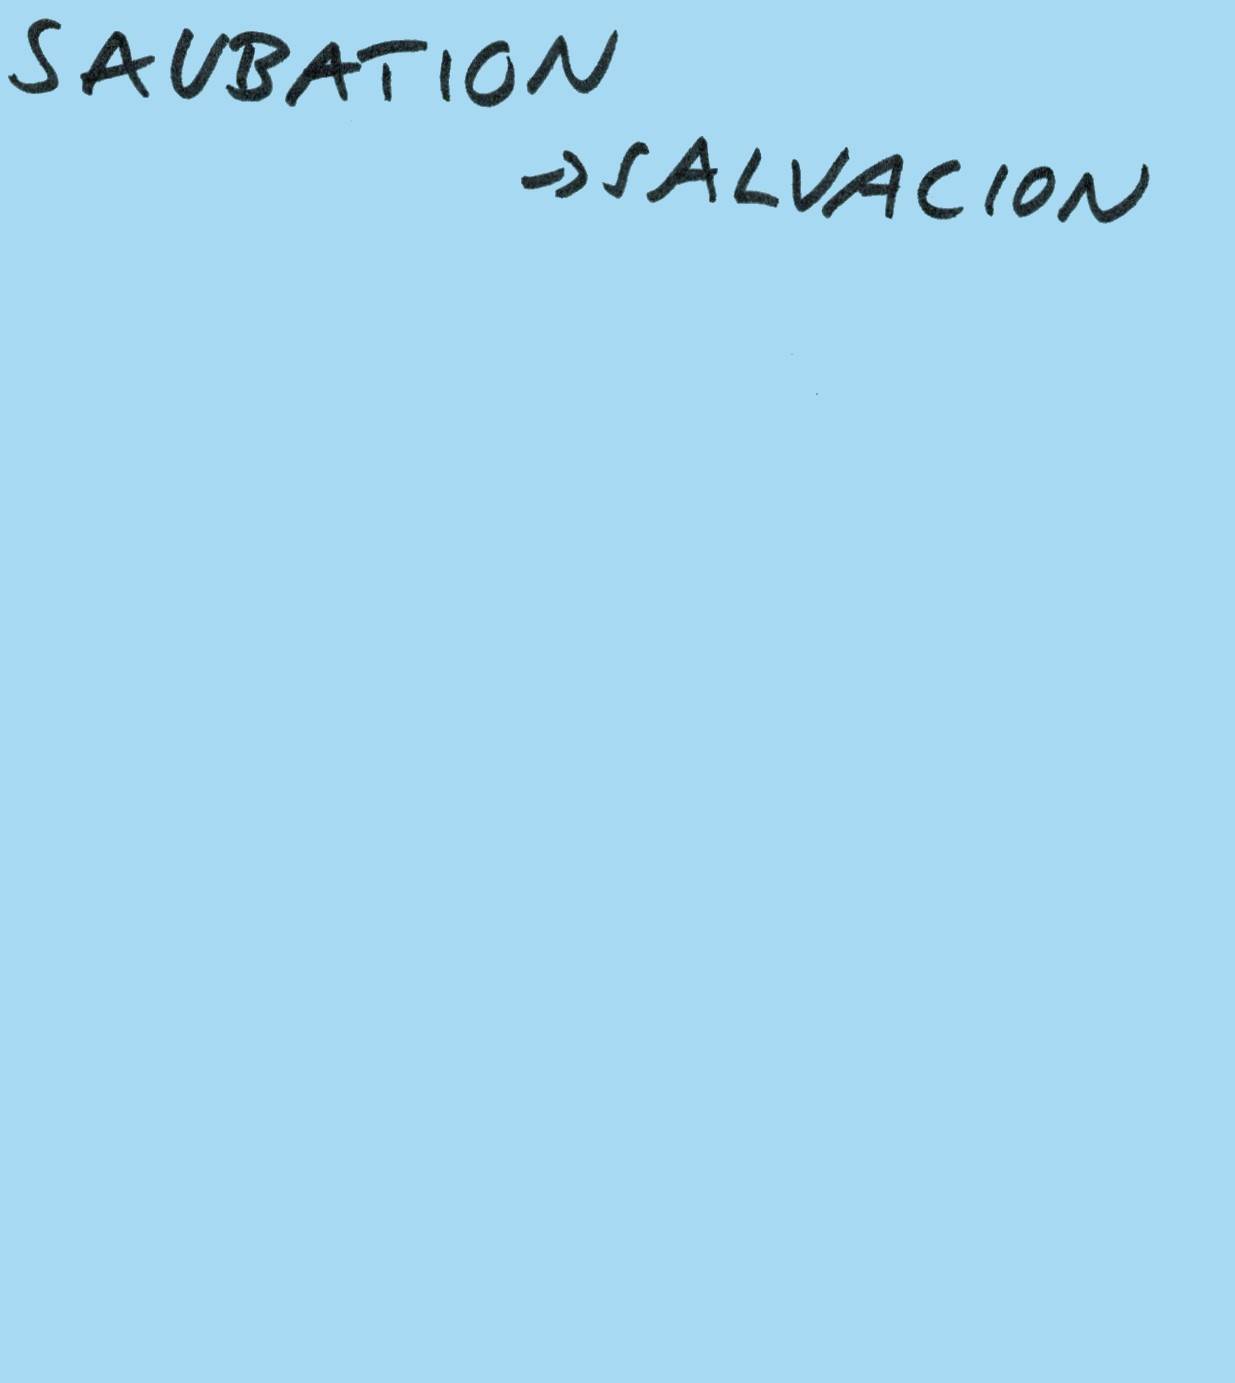 SAUBATION
→SALVACION